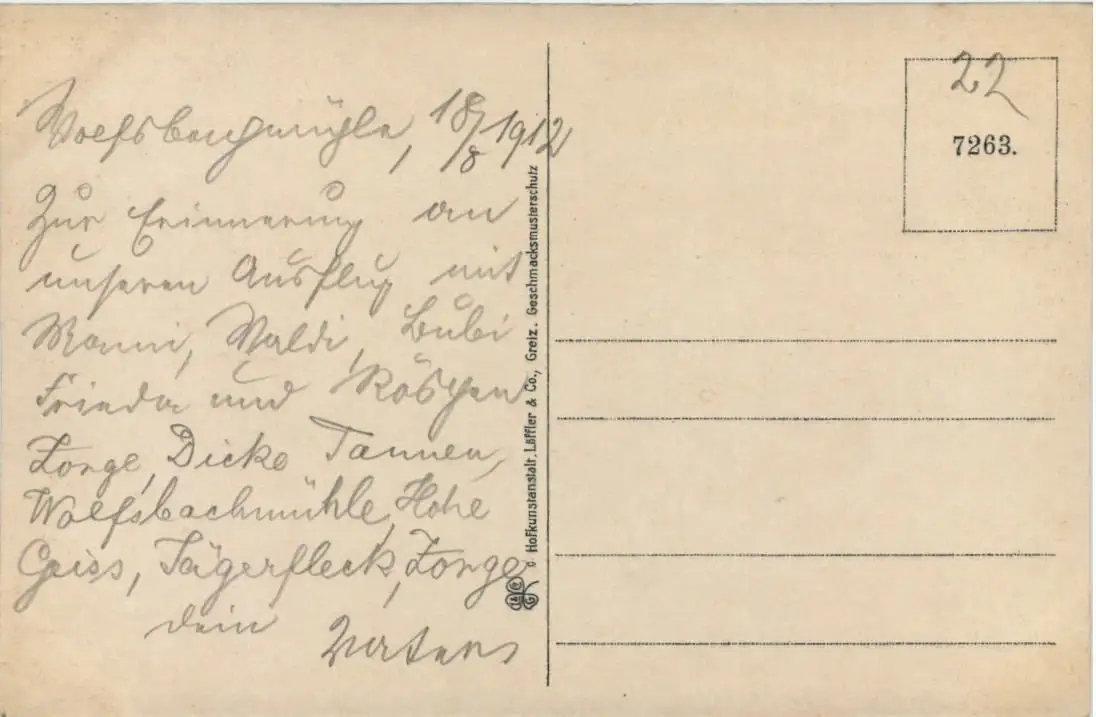 Wolfsbachmühle, 18/8 1912
Zur Erinnerung an
unseren Ausflug mit
Manni, Waldi, Bubi
Frieda und Röschen
Zorge, Dicke Tannen,
Wolfsbachmühle, Hohe
Geiss, Jägerfleck, Zorge
dein
Hofkunstanstalt, Löffler & Co., Greiz. Geschmacksmusterschutz
22
7263.